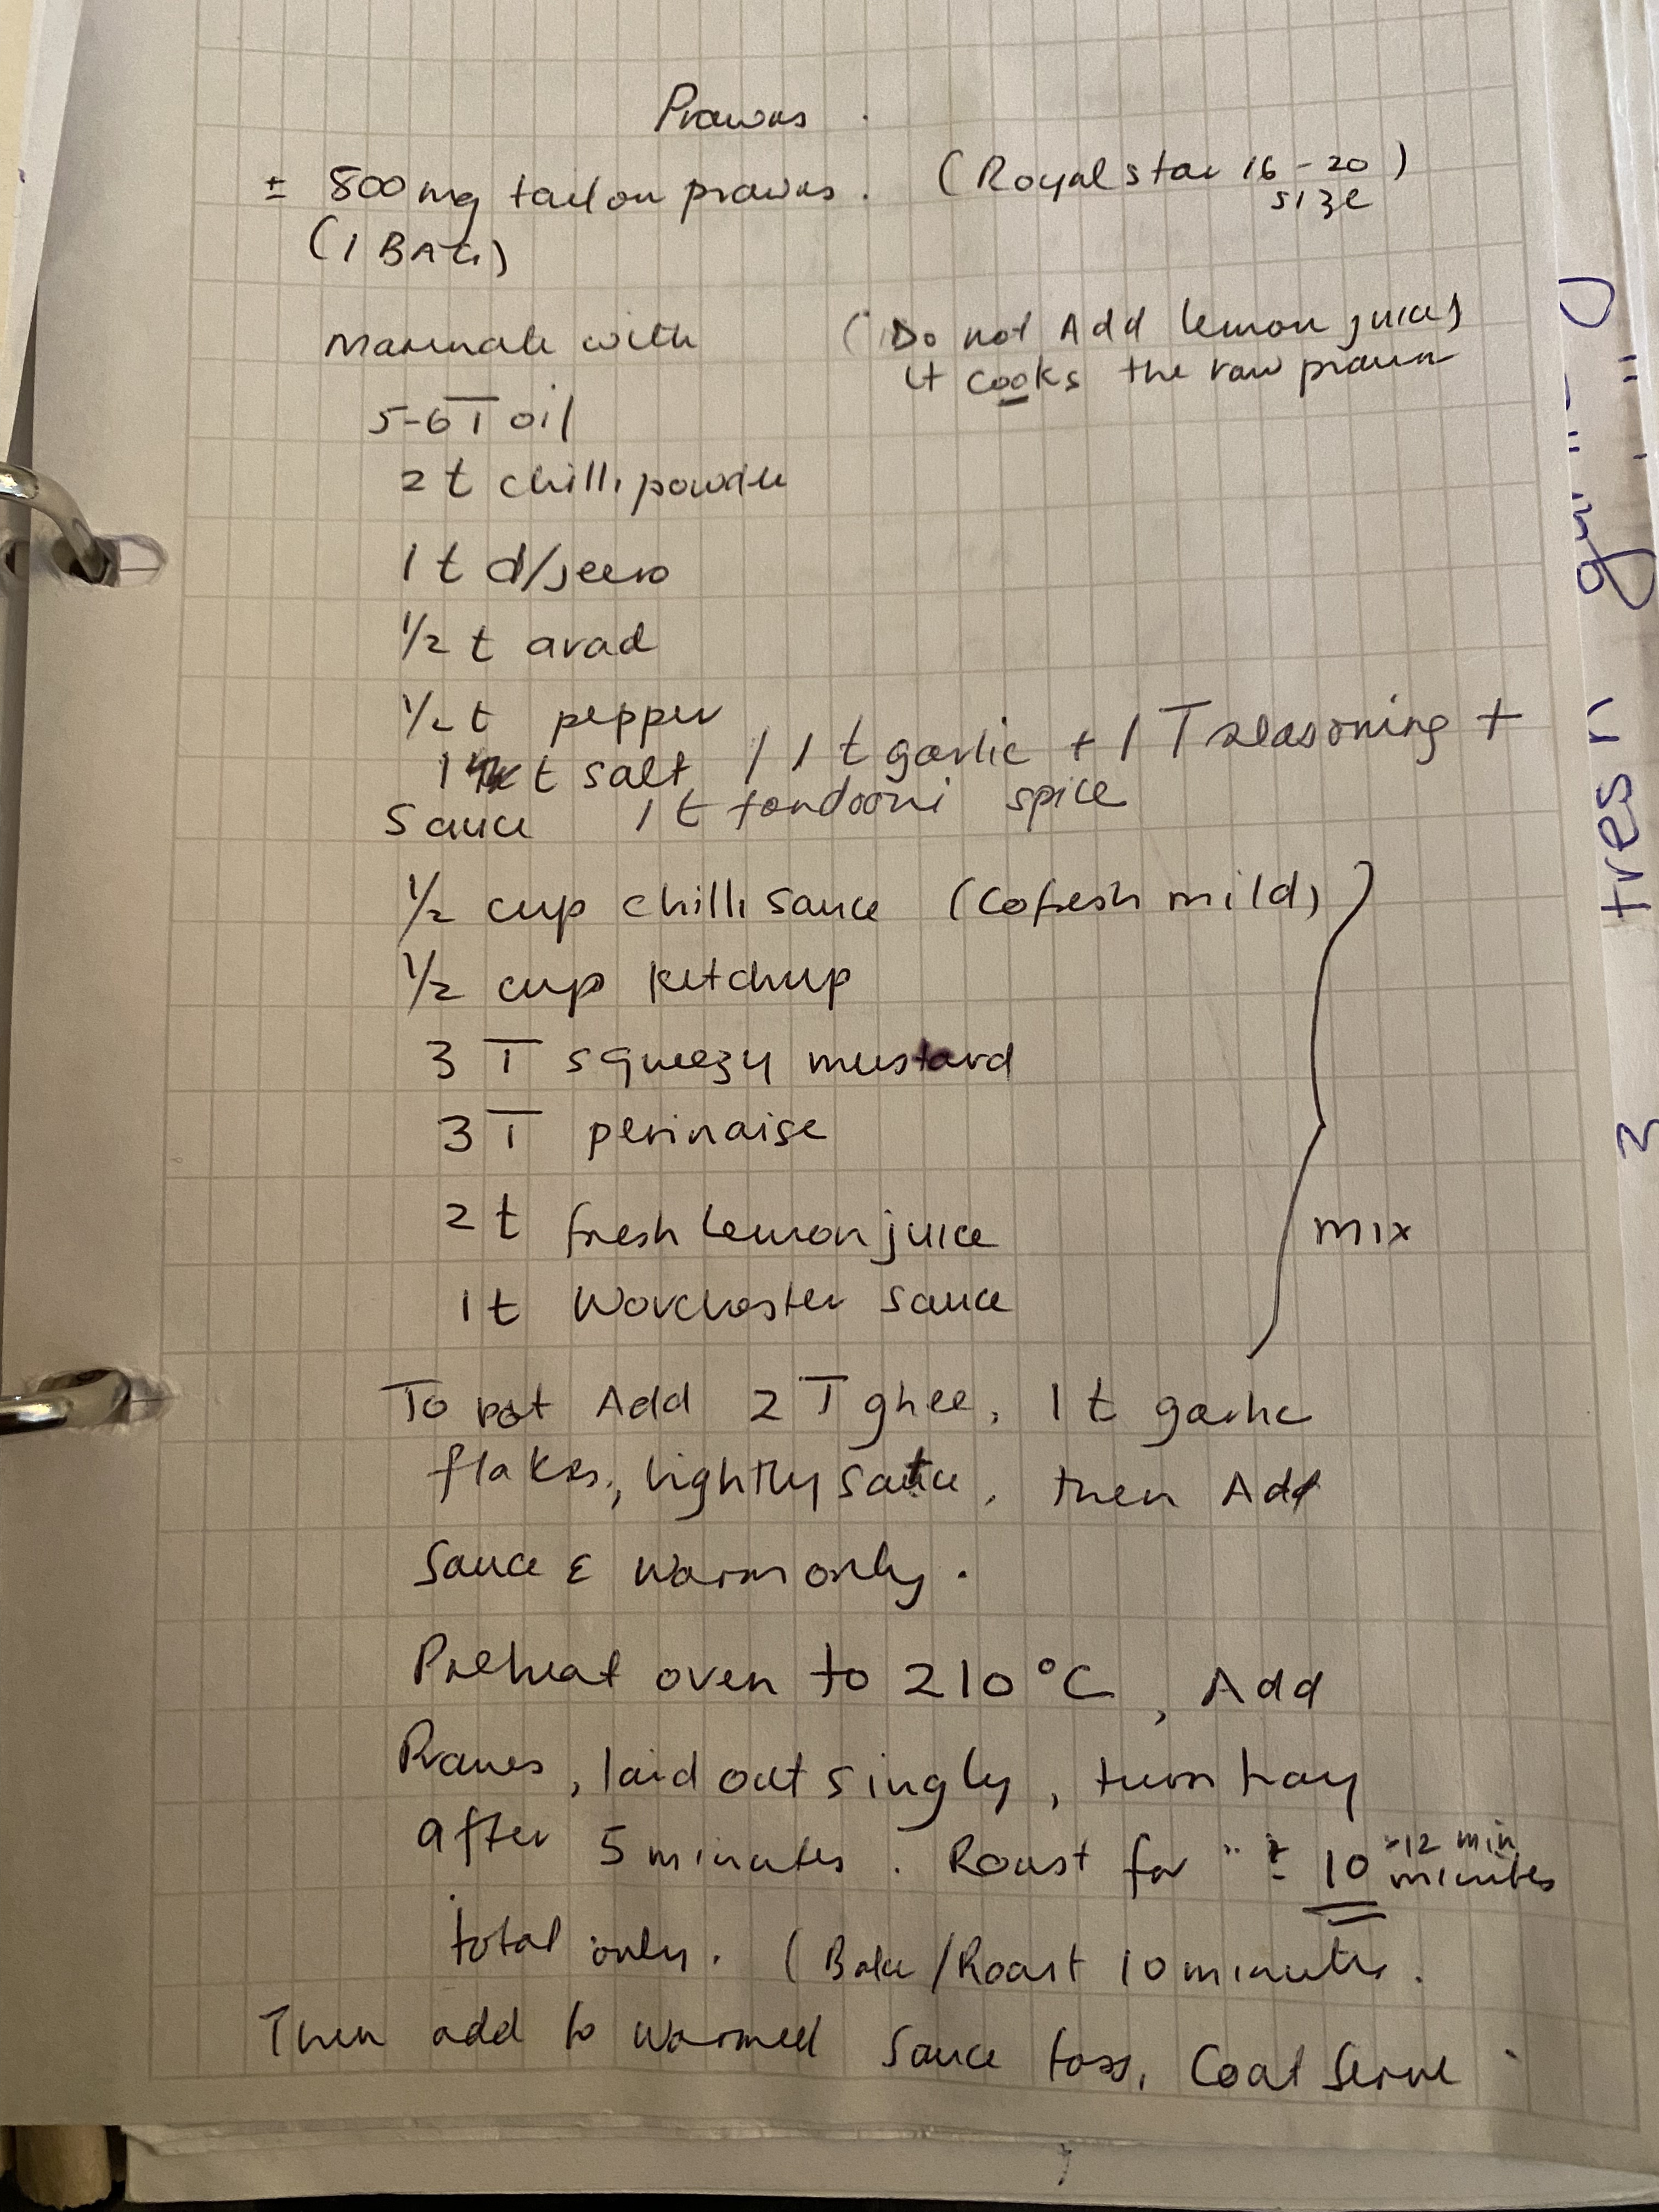 Prawns
± 800 mg tail on prawns. (Royal star 16-20)
size
(1 BAG)
marinate with (Do not Add lemon juice)
it cooks the raw prawn
5-6 T oil
2 t chilli powder
1 t d/jeero
1/2 t arad
1/2 t pepper
1 t salt / 1 t garlic + 1 T seasoning +
1 t tandoori spice
Sauce
1/2 cup chilli sauce (Cofresh mild)
1/2 cup ketchup
3 T squeezy mustard
3 T perinaise
2 t fresh lemon juice
1 t Worchester sauce
mix
To pot Add 2 T ghee, 1 t garlic
flakes, lightly saute, then Add
Sauce & warm only.
Preheat oven to 210°C, Add
Prawns, laid out singly, turn tray
after 5 minutes. Roast for ± 10 -12 min
minutes
total only. (Bake/Roast 10 minutes.
Then add to warmed sauce toss, Coat Serve
fresh
3